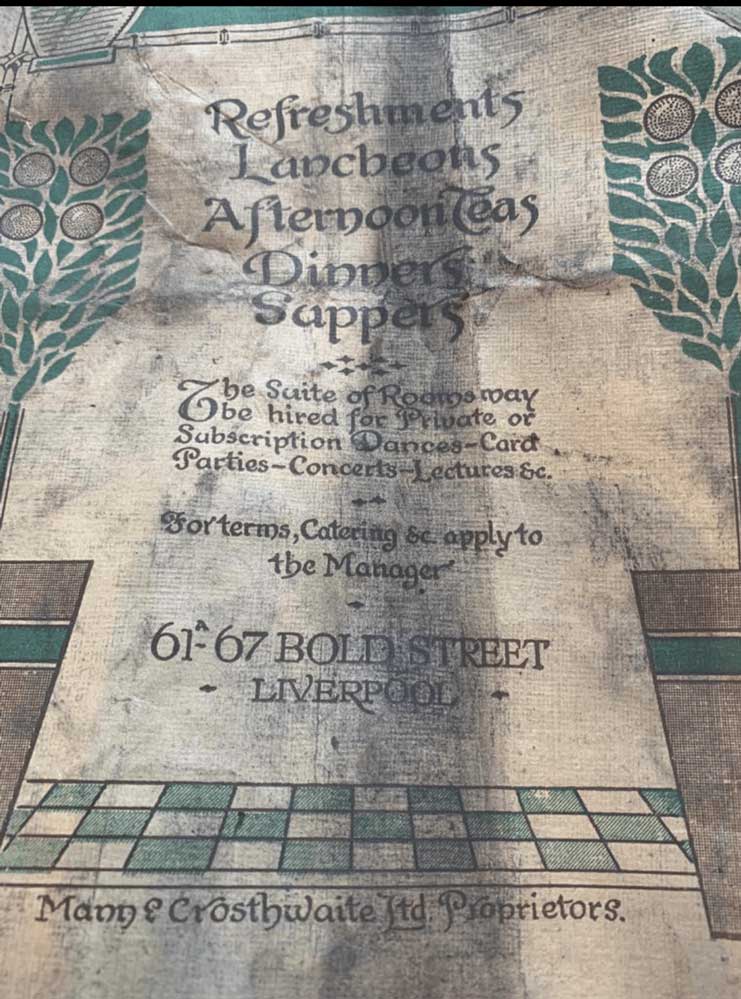 Refreshments
Luncheons
Afternoon Teas
Dinners
Suppers
The Suite of Rooms may
be hired for Private or
Subscription Dances-Card
Parties-Concerts-Lectures &c.
For terms, Catering &c. apply to
the Manager
61A-67 BOLD STREET
LIVERPOOL
Mann & Crosthwaite Ltd. Proprietors.